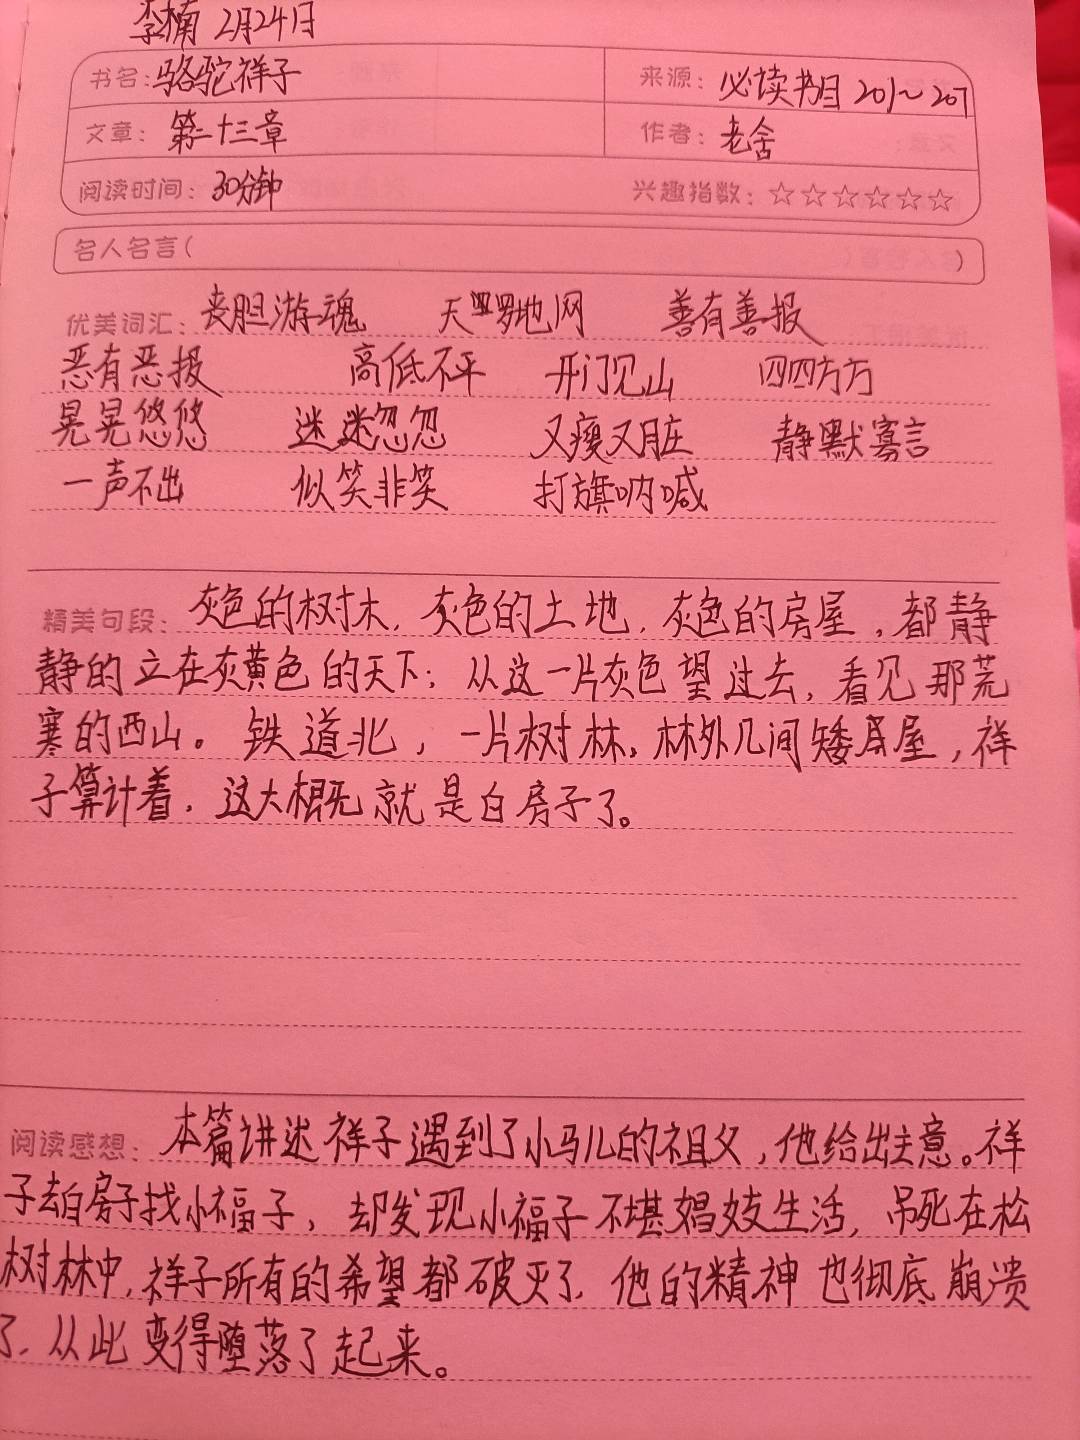 李楠 2月24日
书名:骆驼祥子 来源: 必读书目 201~207
文章: 第二十三章 作者: 老舍
阅读时间: 30分钟 兴趣指数: ☆☆☆☆☆☆
名人名言( )
优美词汇: 丧胆游魂 天罗地网 善有善报
恶有恶报 高低不平 开门见山 四四方方
晃晃悠悠 迷迷忽忽 又瘦又脏 静默寡言
一声不出 似笑非笑 打旗呐喊
精美句段: 灰色的树木,灰色的土地,灰色的房屋,都静
静的立在灰黄色的天下;从这一片灰色望过去,看见那荒
寒的西山。铁道北,一片树林,林外几间矮房屋,祥
子算计着,这大概就是白房子了。
阅读感想: 本篇讲述祥子遇到了小马儿的祖父,他给出主意。祥
子去白房子找小福子,却发现小福子不堪娼妓生活,吊死在松
树林中,祥子所有的希望都破灭了,他的精神也彻底崩溃
了,从此变得堕落了起来。